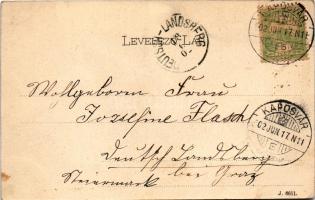 KAPOSVÁR
02 JUN 17. N11
LANDSBERG
DEUTSCH
LEVELEZŐ-LAP
Wollgeborern Frau
Josefine Flasch
KAPOSVÁR
02 JUN 17. N11
E
Deutsch Landsberg
Steiermark bei Graz
J. 4611.